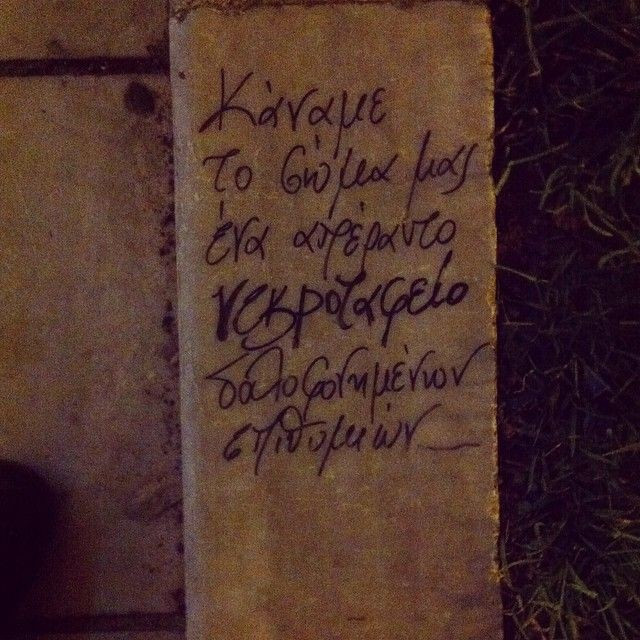 Κάναμε
το σώμα μας
ένα απέραντο
νεκροταφείο
δολοφονημένων
επιθυμιών